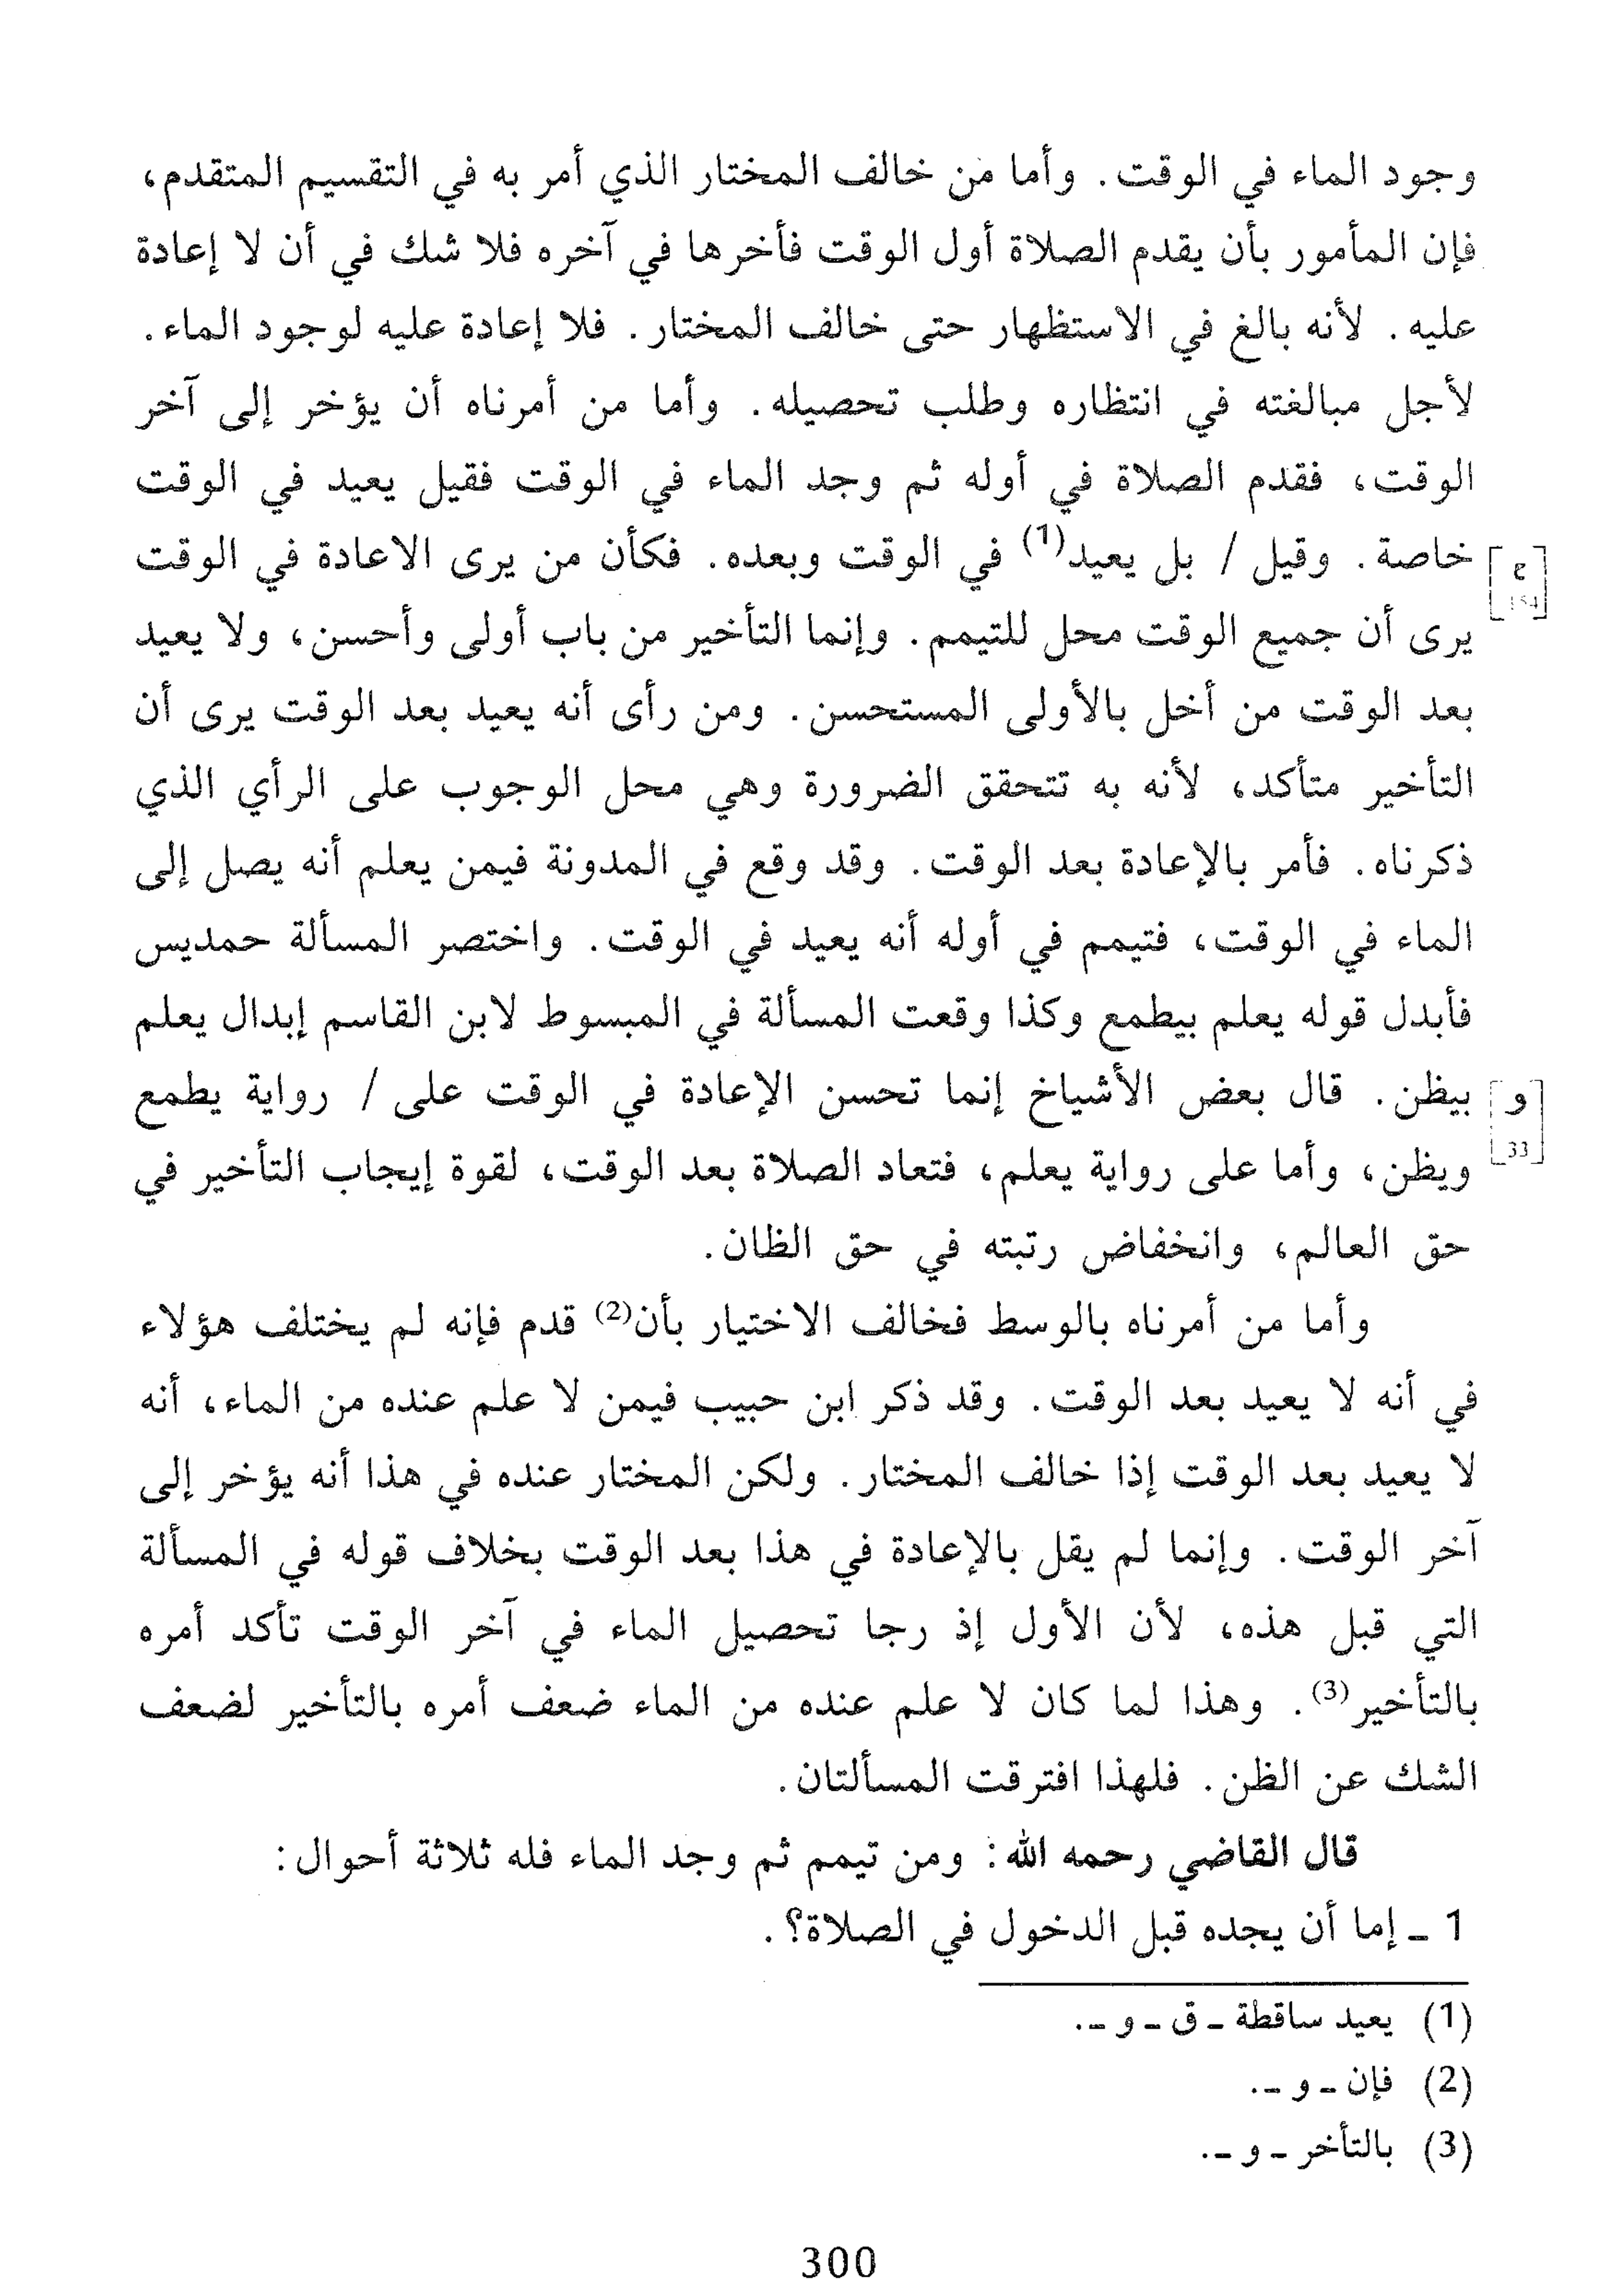 وجود الماء في الوقت. وأما من خالف المختار الذي أمر به في التقسيم المتقدم،
فإن المأمور بأن يقدم الصلاة أول الوقت فأخرها في آخره فلا شك في أن لا إعادة
عليه. لأنه بالغ في الاستظهار حتى خالف المختار. فلا إعادة عليه لوجود الماء.
لأجل مبالغته في انتظاره وطلب تحصيله. وأما من أمرناه أن يؤخر إلى آخر
الوقت، فقدم الصلاة في أوله ثم وجد الماء في الوقت فقيل يعيد في الوقت
خاصة. وقيل / بل يعيد(1) في الوقت وبعده. فكأن من يرى الاعادة في الوقت
[ع 154]
يرى أن جميع الوقت محل للتيمم. وإنما التأخير من باب أولى وأحسن، ولا يعيد
بعد الوقت من أخل بالأولى المستحسن. ومن رأى أنه يعيد بعد الوقت يرى أن
التأخير متأكد، لأنه به تتحقق الضرورة وهي محل الوجوب على الرأي الذي
ذكرناه. فأمر بالإعادة بعد الوقت. وقد وقع في المدونة فيمن يعلم أنه يصل إلى
الماء في الوقت، فتيمم في أوله أنه يعيد في الوقت. واختصر المسألة حمديس
فأبدل قوله يعلم بيطمع وكذا وقعت المسألة في المبسوط لابن القاسم إبدال يعلم
بيظن. قال بعض الأشياخ إنما تحسن الإعادة في الوقت على / رواية يطمع
[و 33]
ويظن، وأما على رواية يعلم، فتعاد الصلاة بعد الوقت، لقوة إيجاب التأخير في
حق العالم، وانخفاض رتبته في حق الظان.
وأما من أمرناه بالوسط فخالف الاختيار بأن(2) قدم فإنه لم يختلف هؤلاء
في أنه لا يعيد بعد الوقت. وقد ذكر ابن حبيب فيمن لا علم عنده من الماء، أنه
لا يعيد بعد الوقت إذا خالف المختار. ولكن المختار عنده في هذا أنه يؤخر إلى
آخر الوقت. وإنما لم يقل بالإعادة في هذا بعد الوقت بخلاف قوله في المسألة
التي قبل هذه، لأن الأول إذ رجا تحصيل الماء في آخر الوقت تأكد أمره
بالتأخير(3). وهذا لما كان لا علم عنده من الماء ضعف أمره بالتأخير لضعف
الشك عن الظن. فلهذا افترقت المسألتان.
قال القاضي رحمه الله: ومن تيمم ثم وجد الماء فله ثلاثة أحوال:
1 ـ إما أن يجده قبل الدخول في الصلاة؟.
(1) يعيد ساقطة ـ ق ـ و ـ.
(2) فإن ـ و ـ.
(3) بالتأخر ـ و ـ.
300